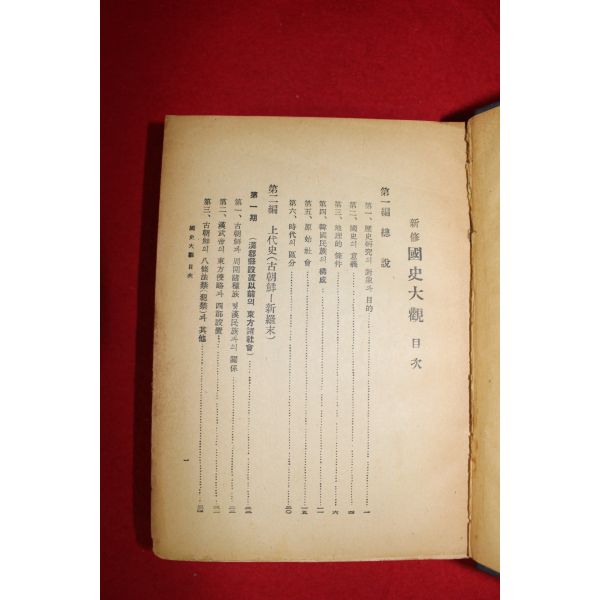 新修 國史大觀 目次
第一編 總說
第一、歷史研究의 對象과 目的 一
第二、國史의 意義 四
第三、地理的 條件 六
第四、韓國民族의 構成 一一
第五、原始社會 一五
第六、時代의 區分 二〇
第二編 上代史(古朝鮮—新羅末)
第一期 (漢郡縣設置以前의 東方諸社會) 二二
第一、古朝鮮과 周圍諸種族 및 漢民族과의 關係 二二
第二、漢武帝의 東方侵略과 四郡設置
第三、古朝鮮의 八條法禁(犯禁)과 其他
國史大觀 目次
一